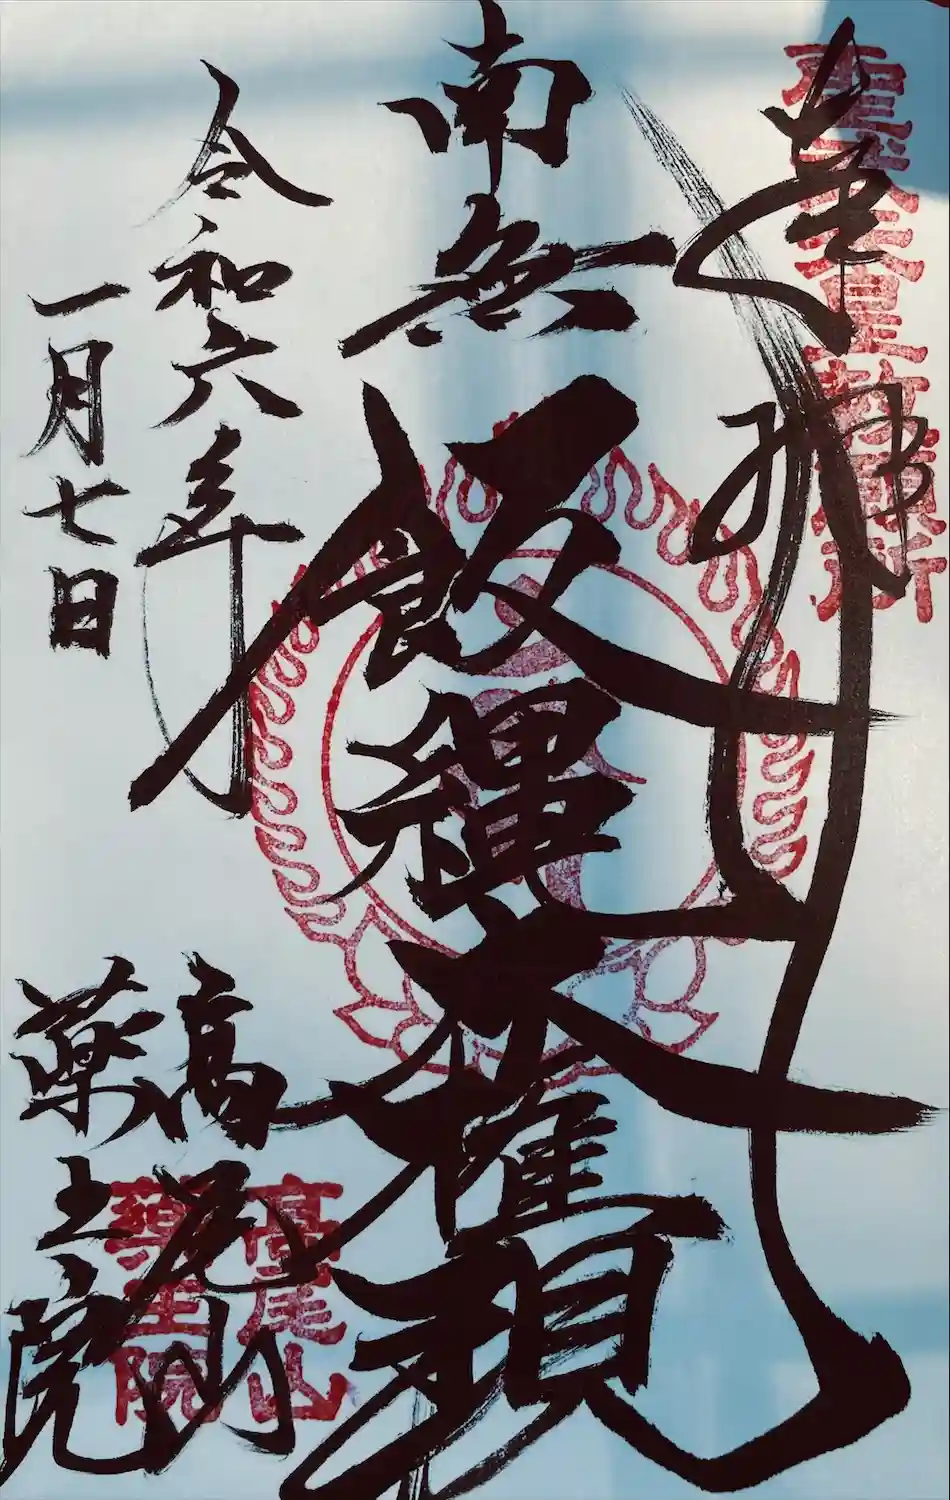 奉拝
聖武天皇勅願所
南無飯縄大権現
令和六年
一月七日
高尾山
薬王院
高尾山
薬王院